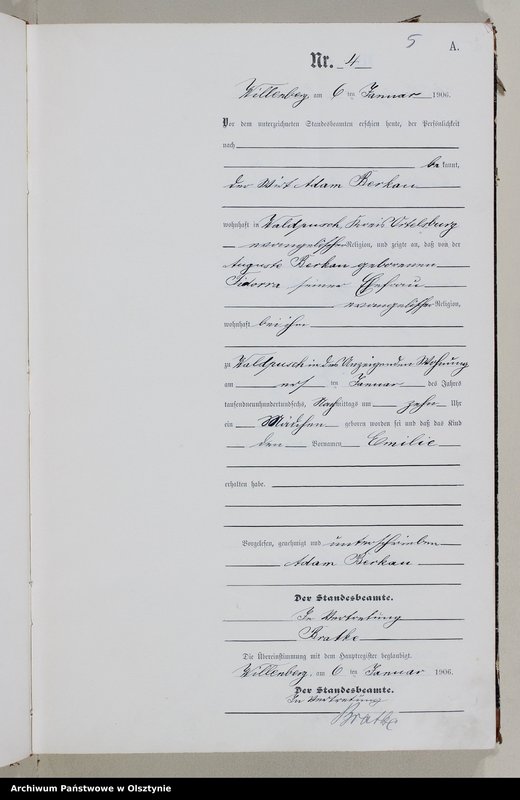 5
A.
Nr. 4
Willenberg, am 6 ten Januar 1906.
Vor dem unterzeichneten Standesbeamten erschien heute, der Persönlichkeit
nach
be kannt,
der Wirt Adam Berkau
wohnhaft in Waldpusch, Kreis Ortelsburg
evangelischer Religion, und zeigte an, daß von der
Auguste Berkau geborenen
seiner Ehefrau
evangelischer Religion,
wohnhaft bei ihm
zu Waldpusch in des Anzeigenden Wohnung
am ersten Januar des Jahres
tausendneunhundertundsechs, Nachmittags um zehn Uhr
ein Mädchen geboren worden sei und daß das Kind
den Vornamen Emilie
erhalten habe.
Vorgelesen, genehmigt und unterschrieben
Adam Berkau
Der Standesbeamte.
In Vertretung
Bratke
Die Übereinstimmung mit dem Hauptregister beglaubigt.
Willenberg, am 6 ten Januar 1906.
Der Standesbeamte.
In Vertretung
Bratke
Archiwum Państwowe w Olsztynie